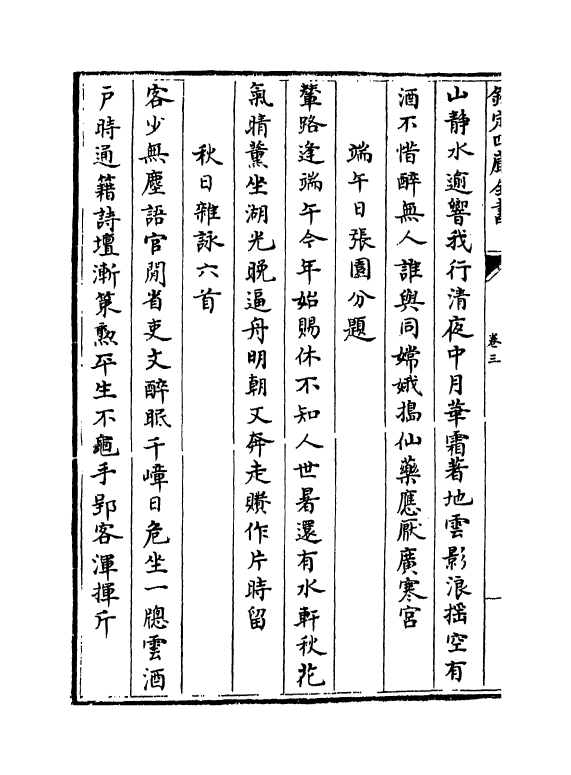 欽定四庫全書
卷三
山静水逾響我行清夜中月華霜著地雲影浪揺空有
酒不惜醉無人誰與同嫦娥搗仙藥應厭廣寒宫
端午日張園分題
輦路逢端午今年始賜休不知人世暑還有水軒秋花
氣晴薰坐湖光晚逼舟明朝又奔走賸作片時留
秋日雜詠六首
客少無塵語官閒省吏文醉眠千嶂日危坐一牕雲酒
户時通籍詩壇漸策勲平生不龜手郢客渾揮斤